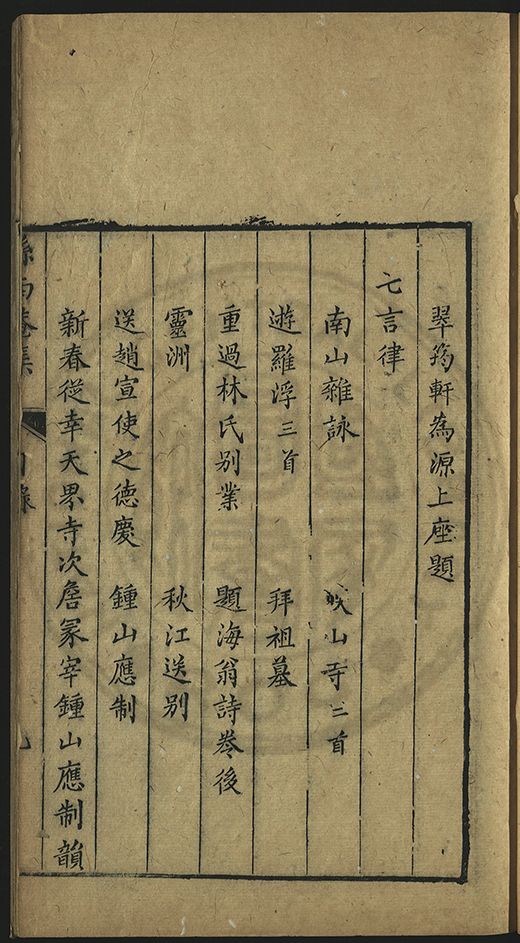 翠筠軒為源上座題
七言律
南山雜詠　峽山寺三首
遊羅浮三首　拜祖墓
重過林氏別業　題海翁詩卷後
靈洲　秋江送別
送趙宣使之德慶　鍾山應制
新春從幸天界寺次詹冢宰鍾山應制韻